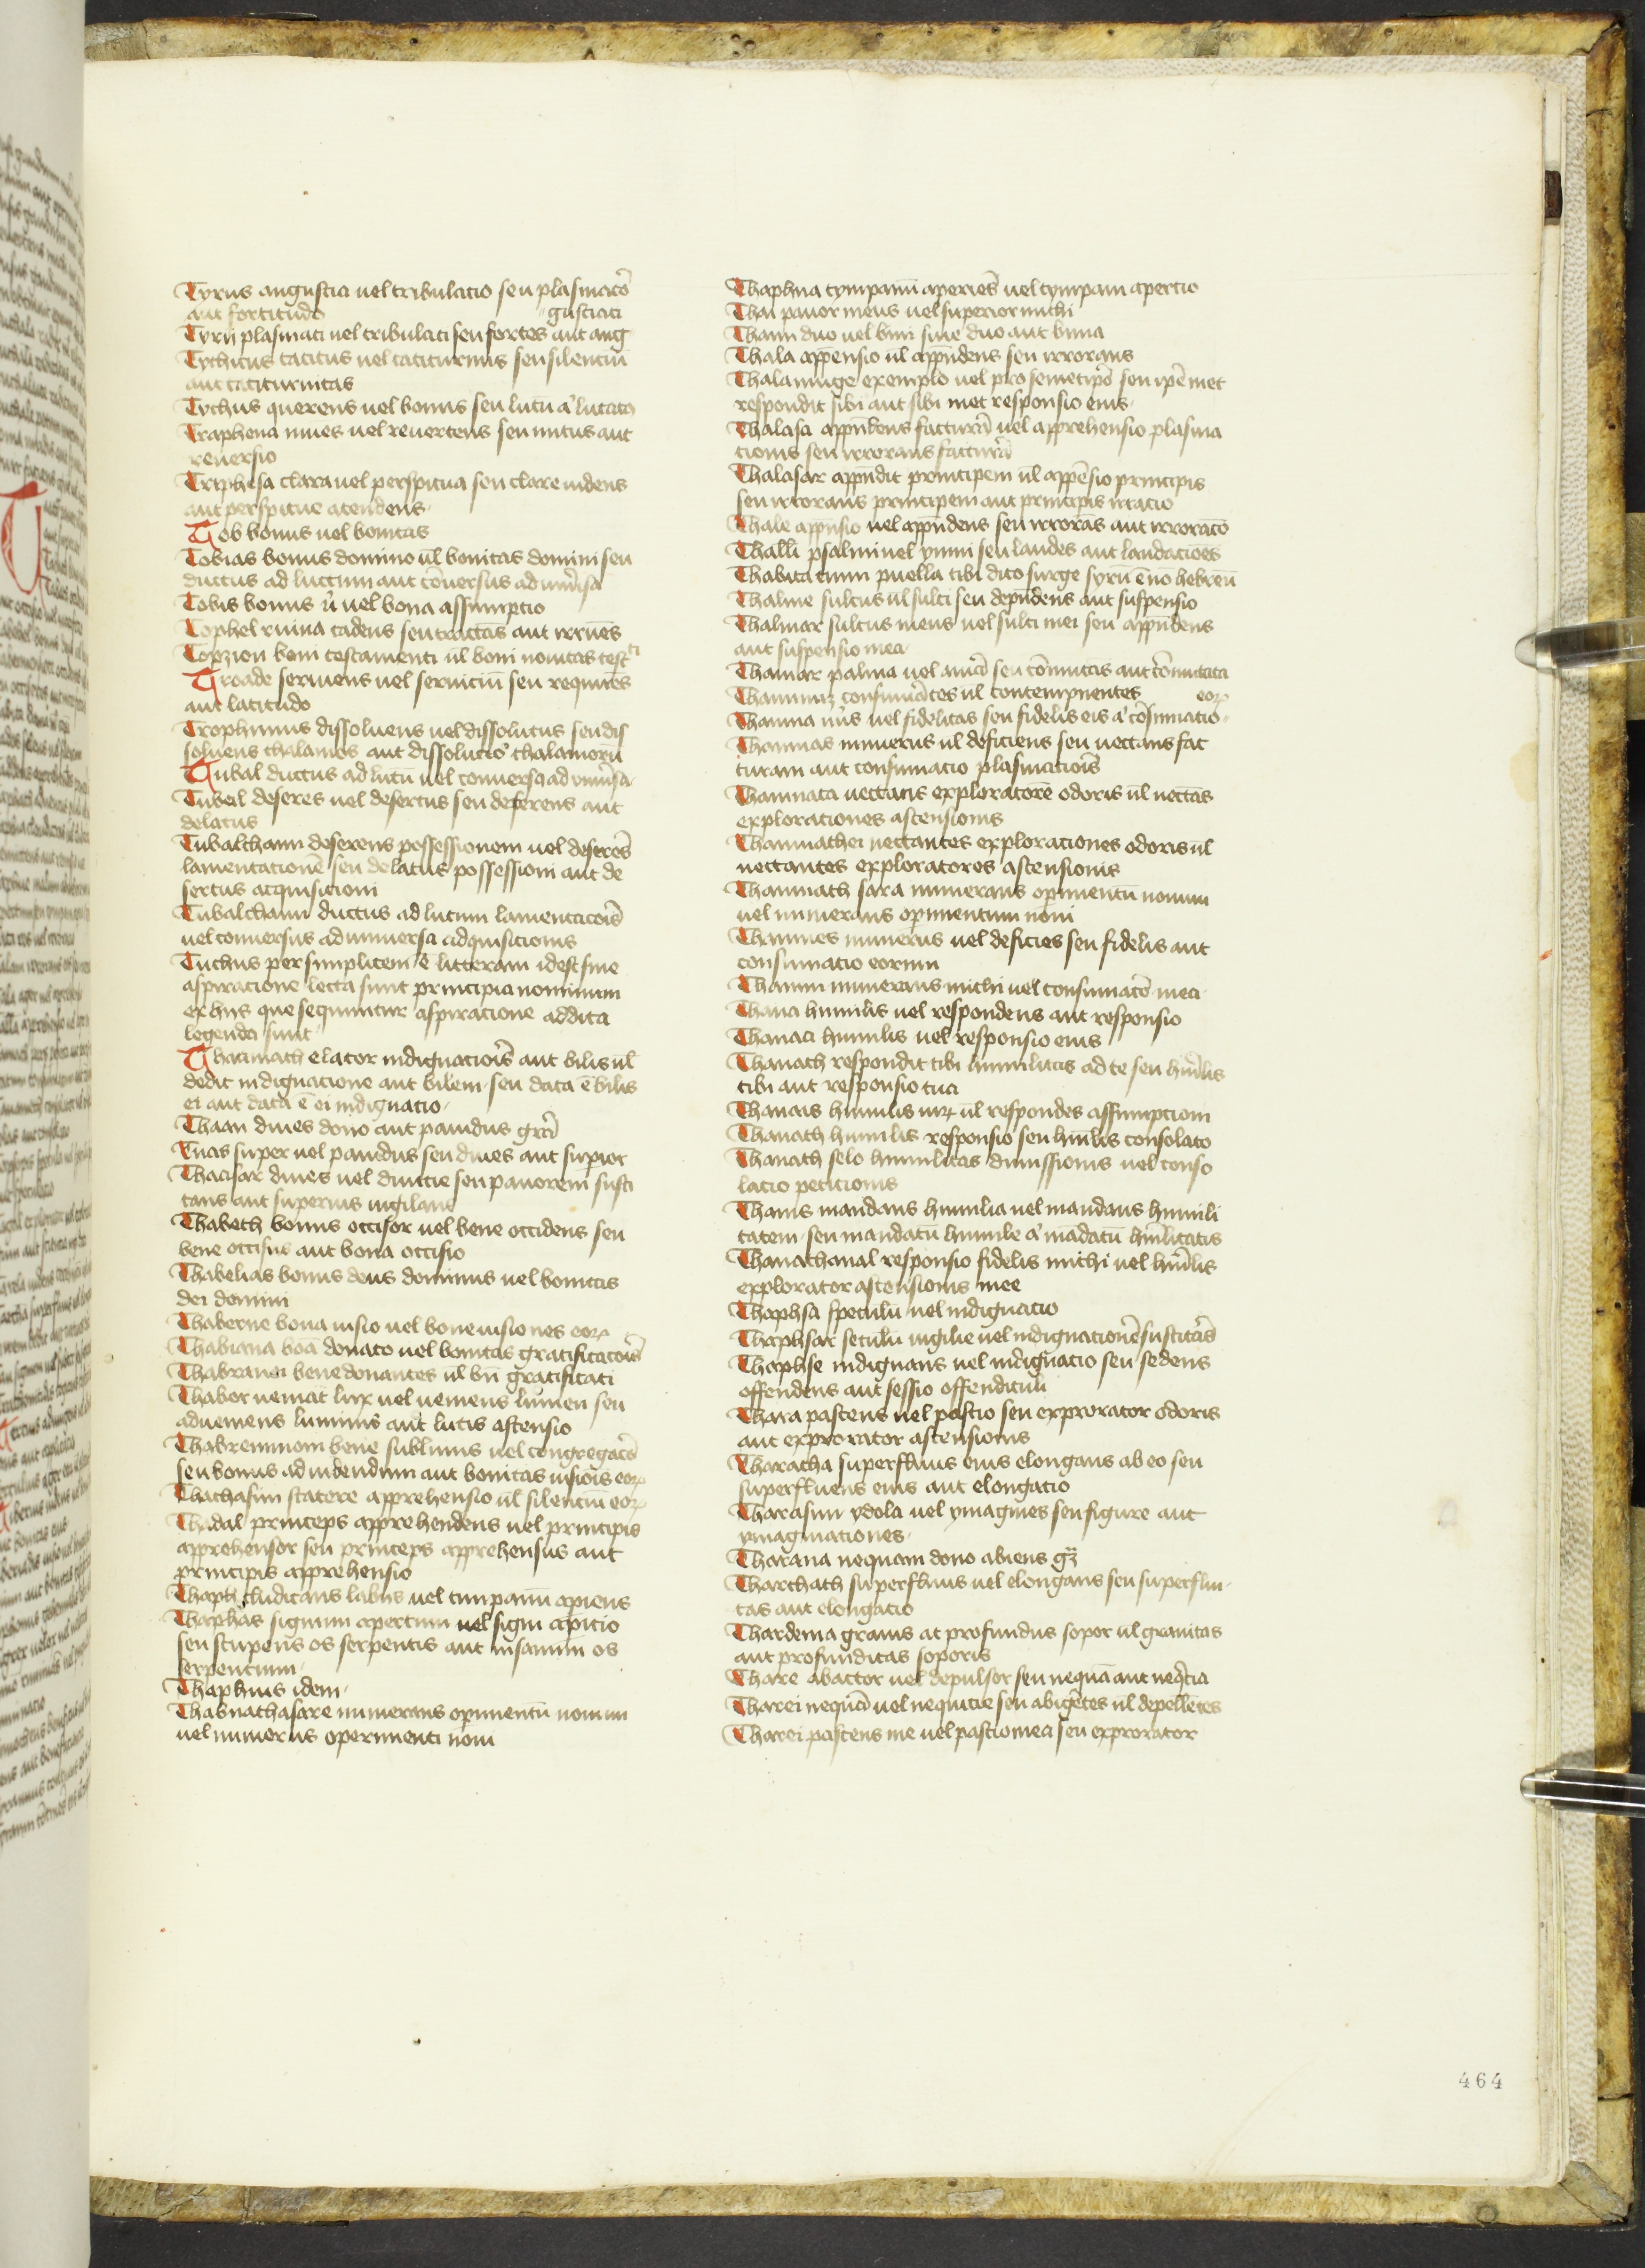 Tyrus angustia uel tribulacio seu plasmacō
aut fortitudo gustiati
Tyrii plasmati uel tribulati seu fortes aut ang
Tychicus tacitus uel taciturnus seu silenciū
aut taciturnitas
Tychus querens uel bonus seu lutū a' lutata
Traphena nues uel reuertens seu nutus aut
reuersio
Triphosa clara uel perspicua seu clare uidens
aut perspicue atendens
Tob bonus uel bonitas
Tobias bonus domino ūl bonitas domini seu
ductus ad luctum aut cōuersus ad uniu'sa
Tobis bonus ū uel bona assumptio
Tophel ruina cadens seu tractans aut irruēs
Topzion boni testamenti ūl boni nouitas testti
Troade seruiens uel seruiciū seu requires
aut latitudo
Trophimus dissoluens uel dissolutus seu dis
soluens thalamos aut dissolucio thalamorū
Tubal ductus ad lutū uel conuersq ad uniu'sa
Tubeil deseres uel desertus seu deferens aut
delatus
Tubalchaim deserens possessionem uel deserēs
lamentacionē seu delatus possessioni aut de
sertus acquisicioni
Tubalchaim ductus ad lutum lamentacōis
uel conuersus ad uniuersa adquisicionis
Tuchus per simplicem e litteram idest sine
aspiracione lecta sunt principia nominum
ex hiis que sequuntur aspiracione addita
legenda sunt
Thacinach elator indignaciois aut bilis ūl
dedit indignacione aut bilem seu data ē bilis
ei aut data ē ei indignacio
Thaan diues dono aut pauidus grā
Tuas super uel pauidus seu diues aut suꝑior
Thaasar diues uel diuicie seu pauorem susci
tans aut superius uigilans
Thabeth bonus occisor uel bene occidens seu
bene occisus aut bona occisio
Thabelias bonus deus dominus uel bonitas
dei domini
Thaberne bona uisio uel bone uisiones eoꝝ
Thabiana boā donato uel bonitas gratificacōis
Thabranei bene donantes ūl bn̄ gratificati
Thabor ueniat lux uel ueniens lumen seu
adueniens luminis aut lucis ascensio
Thabremmom bene sublimis uel congregacō
seu bonus ad uidendum aut bonitas uisiois eoꝝ
Thachasim statere apprehensio ūl silentiū eoꝝ
Thadal princeps apprehendens uel principis
apprehensor seu princeps apprehensus aut
principis apprehensio
Thaph cludicans labiis uel timpanū apiens
Thaphas signum apertum uel signi apitio
seu stupens os serpentis aut insanum os
serpentium
Thaphnis idem
Thasnathasare numerans opimentū nouum
uel numerus operimenti noui
Thaphna tympanū aperiēs uel tympani apertio
Thai pauor meus uel superior michi
Thaim duo uel bini siue duo aut bima
Thala appensio ūl appn̄dens seu irrorans
Thalamuge exemplo uel pro semetipō seu ipē met
respondit sibi aut sibi met responsio eius
Thalasa appn̄dens facturā uel apprehensio plasma
cionis seu irrorans facturā
Thalasar appn̄dit principem ūl appēsio principis
seu irrorans principem aut principis irtacio
Thale appnsio uel appn̄dens seu irroras aut irroracō
Thalli psalmi uel ymni seu laudes aut laudacioes
Thabita cum puella tibi dico surge syrū ē nō hebreū
Thalme sulcus ūl sulci seu depn̄dens aut suspensio
Thalmar sulcus meus uel sulci mei seu appn̄dens
aut suspensio mea
Thamar palma uel amā seu cōmutas aut cōmutata
Thammuz consumātes ūl contempnentes eoꝝ
Thamna nūs uel fidelitas seu fidelis eis a' cōsumatio
Thamnas numerus ūl deficiens seu uectans fac
turam aut consumacio plasmaciois
Thamnata uectans exploratorē odoris ūl uectās
exploraciones ascensionis
Thamnathei uectantes exploraciones odoris ūl
uectantes exploratores ascensionis
Thamnath sara numerans opimentū nouum
uel numerans opimentum noui
Thamnes numerus uel deficies seu fidelis aut
consumacio eorum
Thamni numerans michi uel consumacō mea
Thana humilis uel respondens aut responsio
Thanaa humilis uel responsio eius
Thanach respondit tibi humilitas ad te seu hūilis
tibi aut responsio tua
Thanais humilis uiꝝ ūl respondes assumptiom
Thanath humilis responsio seu hūilis consolato
Thanath selo humilitas dimissionis uel conso
lacio peticionis
Thanis mandans humilia uel mandans humili
tatem seu mandatū humile a' mādatū hūilitatis
Thanachanal responsio fidelis michi uel hūilis
explorator ascensionis mee
Thaphsa speculū uel indignatio
Thaphsar seculū uigilie uel indignacionē suscitās
Thaphse indignans uel indignacio seu sedens
offendens aut sessio offendiculi
Thara pascens uel pascio seu exprorator odoris
aut exprorator ascensionis
Tharacha superfluus eius elongans ab eo seu
superfluens eius aut elongatio
Tharasim ydola uel ymagines seu figure aut
ymaginaciones
Tharana nequam dono abiens gꝫ
Tharchath superfluus uel elongans seu superflui
tas aut elongacio
Thardema grauis at profundus sopor ūl grauitas
aut profunditas soporis
Thare abactor uel depulsor seu nequā aut neqcia
Tharei nequā uel nequicie seu abigētes ūl depellētes
Tharei pascens me uel pascio mea seu exprorator
464